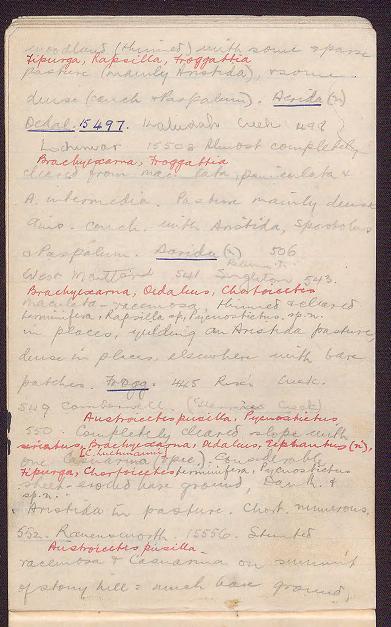 woodland (thinned) with some sparse
Fipurga, Rapsilla, Froggattia
pasture (mainly Aristida), & some
dense (couch & Paspalum). Acrida (n)
Oedal. 15497. Creek 499
Lochinvar 15502 Almost completely
Brachyexarna, Froggattia
cleared from mac. lata, paniculata &
A. intermedia. Pasture mainly dense
couch, with Aristida, Sporobolus
& Paspalum. Acrida (n) 506
West Maitland 541 Singleton 543.
Brachyexarna, Oedaleus, Chortoicetes
maculata - racemosa thinned & cleared
terminifera, Rapsilla sp., Pycnostictus. sp. n.
in places, yielding an Aristida pasture,
dense in places, elsewhere with bare
patches. Frogg. 445 Rixs Creek.
549
Austroicetes pusilla, Pycnostictus
550. Completely cleared slope with
seriatus, Brachyexarna, Oedaleus, (n),
one Casuarina (spec). Considerably
Fipurga, Chortoicetes terminifera, Pycnostictus
sheet-eroded bare ground, &
sp. n.
& Aristida in pasture. Chort. numerous.
552. Ravensworth 15556. Stunted
Austroicetes pusilla
racemosa & Casuarina on summit
of stony hill & much bare ground,